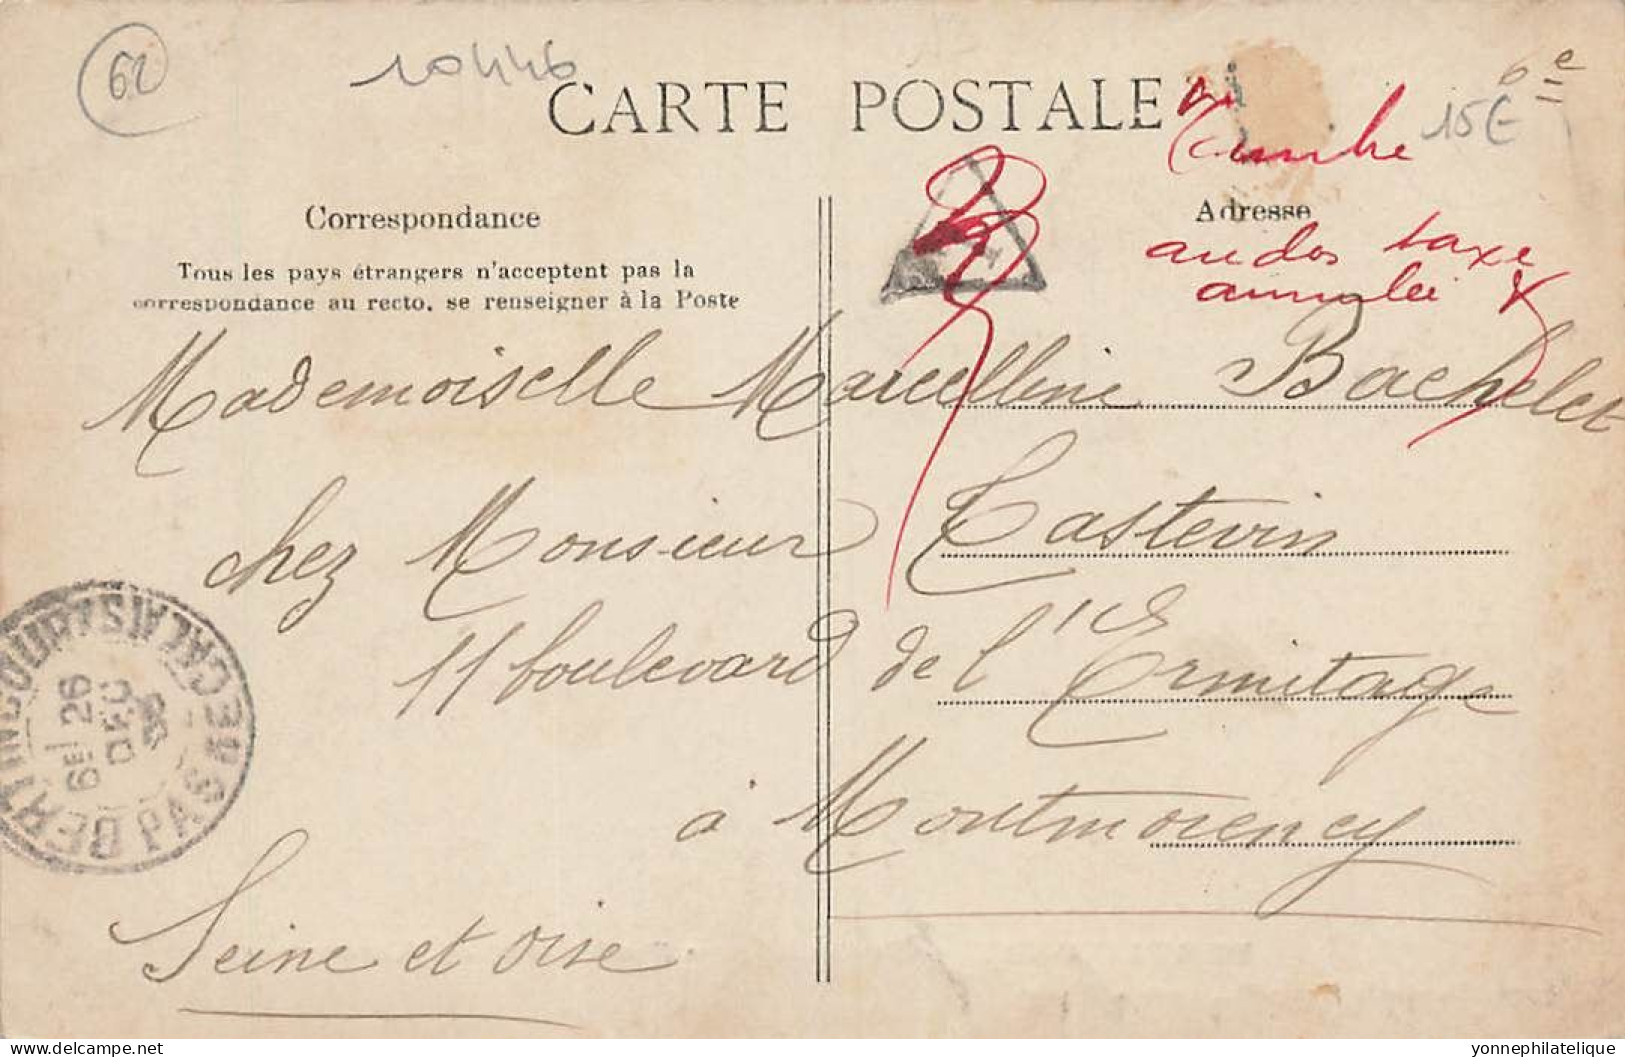 62
10446
CARTE POSTALE
6e
15€
Timbre
au dos taxe
annulée
Correspondance
Adresse
Tous les pays étrangers n'acceptent pas la
correspondance au recto, se renseigner à la Poste
Mademoiselle Marcelline Bachelet
chez Monsieur Tastevin
11 boulevard de l'Ermitage
à Montmorency
Seine et Oise
BERTINCOURT
PAS DE CALAIS
6E 26
DEC
Delcampe.net
yonnephilatelie